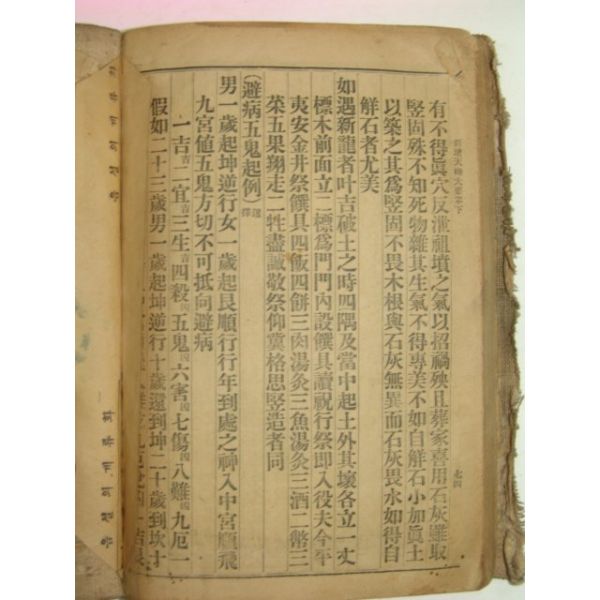 有不得眞穴反泄祖墳之氣以招禍殃且葬家喜用石灰雖取
竪固殊不知死物雜其生氣不得專美不如自解石小加眞土
以築之其爲竪固不畏木根與石灰無異而石灰畏水如得自
解石者尤美
如遇新龍者叶吉破土之時四隅及當中起土外其壤各立一丈
標木前面立二標爲門門內設饌具讀祝行祭即入役夫今平
夷安金井祭饌具四飯四餠三肉湯灸三魚湯灸三酒二幣三
菜五果翔走二牲盡誠敬祭仰冀格思竪造者同
(避病五鬼起例)選擇
男一歲起坤逆行女一歲起艮順行行年到處之神入中宮順飛
九宮値五鬼方切不可抵向避病
一吉吉二宜吉三生吉四殺凶五鬼凶六害凶七傷凶八難凶九厄一
假如二十三歲男一歲起坤逆行十歲還到坤二十歲到坎才
七四